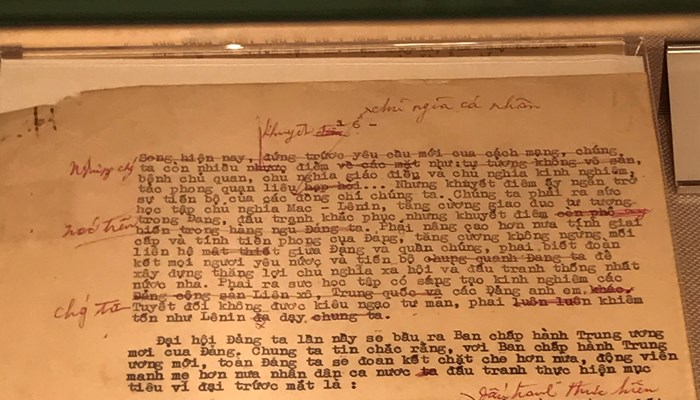 chủ nghĩa cá nhân
khuyết
- 16 -
Song hiện nay, đứng trước yêu cầu mới của cách mạng, chúng
ta còn nhiều nhược điểm về các mặt như: tư tưởng không vô sản,
bệnh chủ quan, chủ nghĩa giáo điều và chủ nghĩa kinh nghiệm,
tác phong quan liêu hẹp hòi... Những khuyết điểm ấy ngăn trở
sự tiến bộ của các đồng chí chúng ta. Chúng ta phải ra sức
học tập chủ nghĩa Mác - Lênin, tăng cường giáo dục tư tưởng
trong Đảng, đấu tranh khắc phục những khuyết điểm còn phổ
biến trong hàng ngũ Đảng ta. Phải nâng cao hơn nữa tính giai
cấp và tính tiên phong của Đảng, tăng cường không ngừng mối
liên hệ mật thiết giữa Đảng và quần chúng, phải biết đoàn
kết mọi người yêu nước và tiến bộ chung quanh Đảng ta để
xây dựng thắng lợi chủ nghĩa xã hội và đấu tranh thống nhất
nước nhà. Phải ra sức học tập có sáng tạo kinh nghiệm các
Đảng cộng sản Liên xô, Trung quốc và các Đảng anh em khác.
chúng ta Tuyệt đối không được kiêu ngạo tự mãn, phải luôn luôn khiêm
tốn như Lênin đã dạy chúng ta.
Đại hội Đảng ta lần này sẽ bầu ra Ban chấp hành Trung ương
mới của Đảng. Chúng ta tin chắc rằng, với Ban chấp hành Trung
ương mới, toàn Đảng ta sẽ đoàn kết chặt chẽ hơn nữa, động viên
mạnh mẽ hơn nữa nhân dân cả nước ta đấu tranh thực hiện mục
tiêu vĩ đại trước mắt là :
đấu tranh thực hiện